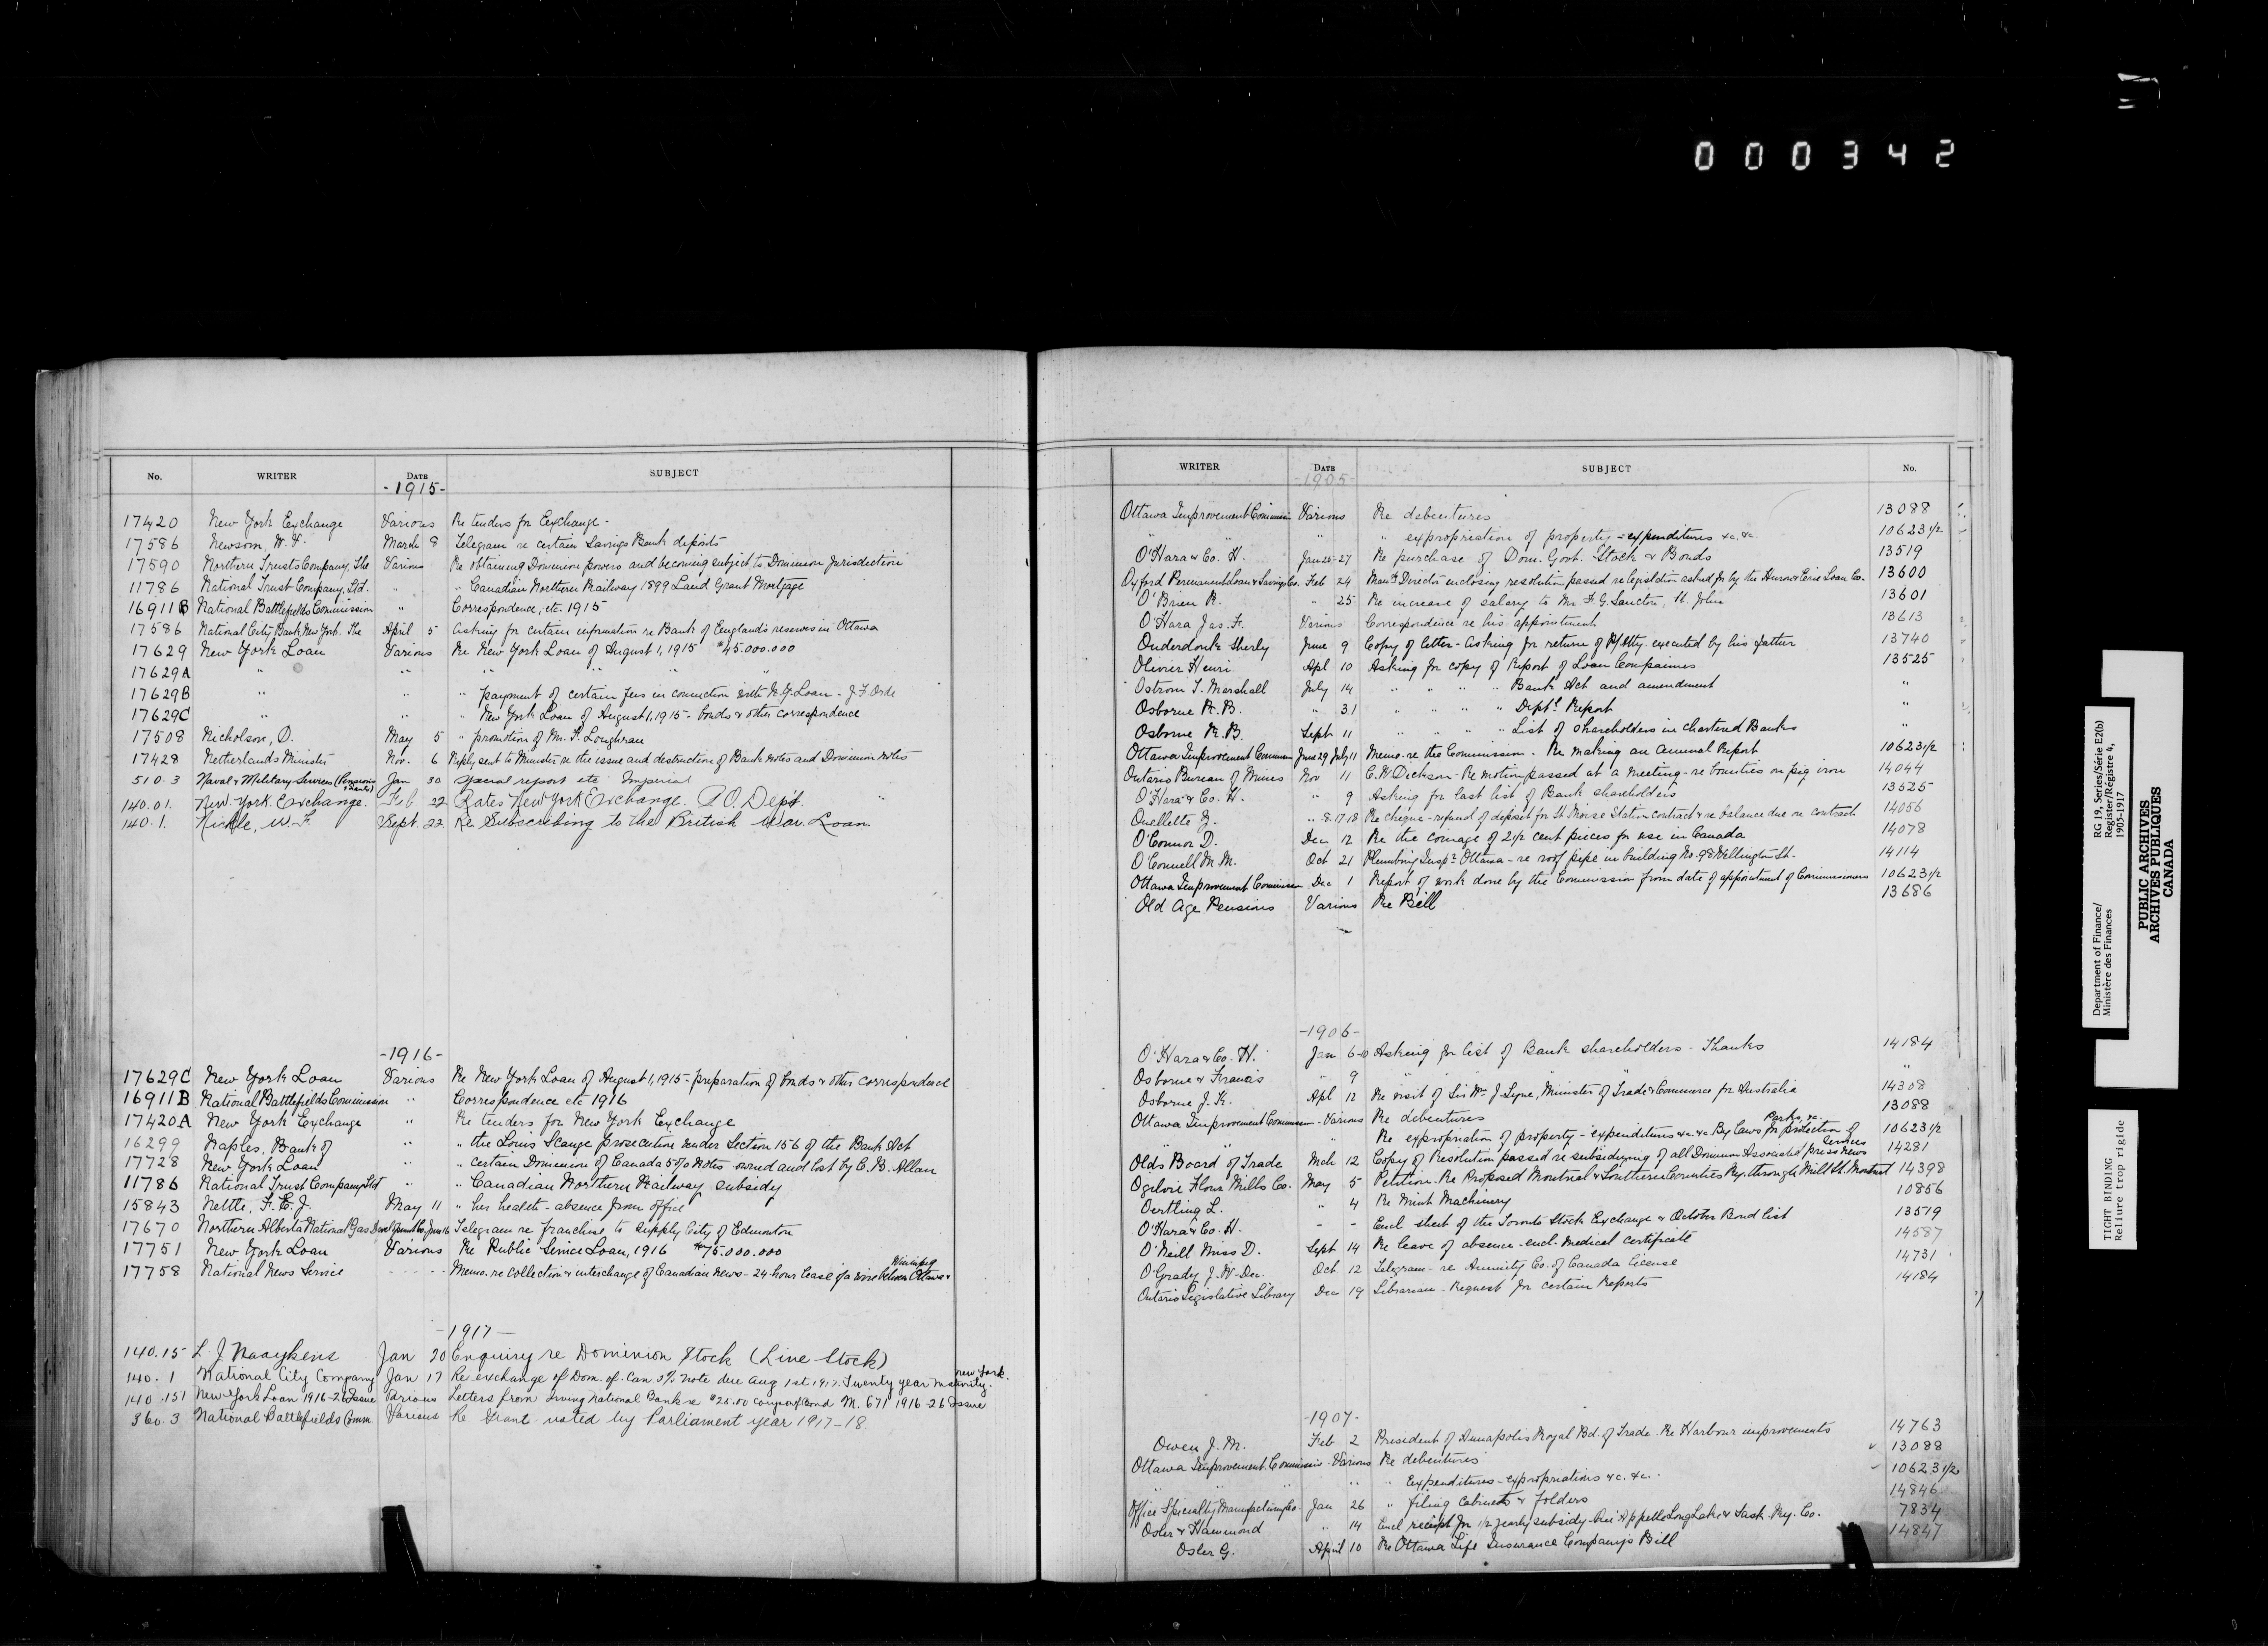 000342
No. WRITER DATE SUBJECT
-1915-
17420 New York Exchange Various Re tenders for Exchange -
17586 Newsom, W. March 8 Telegram re certain Savings Bank deposits
17590 Northern Trusts Company, The Various Re obtaining Dominion powers and becoming subject to Dominion Jurisdiction
11786 National Trust Company, Ltd. " " Canadian Northern Railway 1899 Land Grant Mortgage
16911B National Battlefields Commission " Correspondence, etc. 1915
17586 National City Bank New York. The April 5 Asking for certain information re Bank of England's reserves in Ottawa
17629 New York Loan Various Re New York Loan of August 1, 1915 $45.000.000
17629A " " " "
17629B " " " payment of certain fees in connection with N.Y. Loan - J. F. Orde
17629C " " " New York Loan of August 1, 1915 - bonds & other correspondence
17508 Nicholson, O. May 5 " promotion of Mr. Loughran
17428 Netherlands Minister Nov. 6 Reply sent to Minister re the issue and destruction of Bank notes and Dominion notes
510.3 Naval & Military Services (Pensions Jan 30 Special report etc Imperial
140.01. New York Exchange. Feb 22 Rates New York Exchange. P.O. Dept.
140.1. Nickle, W. F. Sept. 22 Re Subscribing to the British War Loan
-1916-
17629C New York Loan Various Re New York Loan of August 1, 1915 - preparation of bonds & other correspondence
16911B National Battlefields Commission " Correspondence etc 1916
17420A New York Exchange " Re tenders for New York Exchange
16299 Naples, Bank of " " the Louis Scange prosecution under Section 156 of the Bank Act
17728 New York Loan " " certain Dominion of Canada 5% Notes owned and lost by C. B. Allan
11786 National Trust Company Ltd " " Canadian Northern Railway subsidy
15843 Nettle, F. E. J. May 11 " her health - absence from office
17670 Northern Alberta Natural Gas Development Co. June 16 Telegram re franchise to supply City of Edmonton
17751 New York Loan Various Re Public Service Loan, 1916 $75.000.000
17758 National News Service - - - - Memo. re Collection & interchange of Canadian News - 24 hour lease of a wire between Ottawa & Winnipeg
-1917-
140.15 L. J. Naaykens Jan 20 Enquiry re Dominion Stock (Live Stock)
140.1 National City Company Jan 17 Re exchange of Dom. of Can 5% note due Aug 1st 1917. Twenty year maturity. New York.
140.151 New York Loan 1916-26 Issue Various Letters from Irving National Bank re $25.00 coupon of Bond M. 671 1916-26 Issue
360.3 National Battlefields Comm Various Re Grant voted by Parliament year 1917-18.
WRITER DATE SUBJECT No.
-1905-
Ottawa Improvement Commission Various Re debentures 13088
" " " expropriation of property - expenditures &c. &c. 10623 1/2
O'Hara & Co. H. Jan 25-27 Re purchase of Dom. Govt. Stock & Bonds 13519
Oxford Permanent Loan & Savings Co. Feb 24 Man'g Director enclosing resolution passed re legislation asked for by the Huron & Erie Loan Co. 13600
O'Brien R. " 25 Re increase of salary to Mr F. G. Sancton, St. John 13601
O'Hara Jas. F. Various Correspondence re his appointment 13613
Onderdonk Sherly June 9 Copy of letter - Asking for return of P/Atty. executed by his father 13740
Olivier Henri Apl 10 Asking for copy of Report of Loan Companies 13525
Ostrom S. Marshall July 14 " " " " Bank Act and amendment "
Osborne R. B. " 31 " " " " Dept'l Report "
Osborne R. B. Sept 11 " " " " List of shareholders in chartered Banks "
Ottawa Improvement Commn June 29 July 11 Memo. re the Commission. Re making an annual Report 10623 1/2
Ontario Bureau of Mines Nov 11 C. W. Dickson - Re motion passed at a meeting - re bounties on pig iron 14044
O'Hara & Co. H. " 9 Asking for last list of Bank shareholders 13525
Ouellette J. " 8-17-18 Re cheque - refund of deposit for St Moise Station contract & re balance due on contract 14056
O'Connor D. Dec 12 Re the coinage of 2 1/2 cent pieces for use in Canada 14078
O'Connell M. M. Oct 21 Plumbing Insp'r Ottawa - re roof pipe in building No. 98 Wellington St. 14114
Ottawa Improvement Commission Dec 1 Report of work done by the Commission from date of appointment of Commissioners 10623 1/2
Old Age Pensions Various Re Bill 13686
-1906-
O'Hara & Co. H. Jan 6-10 Asking for list of Bank shareholders - Thanks 14184
Osborne & Francis " 9 " " "
Osborne J. K. Apl 12 Re visit of Sir Wm. J. Lyne, Minister of Trade & Commerce for Australia 14308
Ottawa Improvement Commission - Various Re debentures 13088
" " Re expropriation of property - expenditures &c. &c. By laws for protection of Parks, &c. 10623 1/2
Olds Board of Trade Mch 12 Copy of Resolution passed re subsidizing of all Dominion Associated press News Services 14281
Ogilvie Flour Mills Co. May 5 Petition - Re Proposed Montreal & Southern Counties Ry. through Mill St. Montreal 14398
Oertling L. " 4 Re Mint Machinery 10856
O'Hara & Co. H. - - Encl sheet of the Toronto Stock Exchange & October Bond list 13519
O'Neill Miss D. Sept 14 Re leave of absence - encl. Medical certificate 14587
O'Grady J. W. Dec. Oct 12 Telegram - re Annuity Co. of Canada License 14731
Ontario Legislative Library Dec 19 Librarian - Request for certain Reports 14184
-1907-
Owen J. M. Feb 2 President of Annapolis Royal Bd. of Trade. Re Harbour improvements 14763
Ottawa Improvement Commission - Various Re debentures 13088
" " " " Expenditures - expropriations &c. &c. 10623 1/2
Office Specialty Manufacturing Co. Jan 26 " filing Cabinets & folders 14846
Osler & Hammond " 14 Encl receipt for 1/2 yearly subsidy Qu'Appelle Long Lake & Sask. Ry. Co. 7834
Osler G. April 10 Re Ottawa Life Insurance Company's Bill 14847
Department of Finance/
Ministère des Finances
RG 19, Series/Série E2(b)
Register/Régistre 4,
1905-1917
PUBLIC ARCHIVES
ARCHIVES PUBLIQUES
CANADA
TIGHT BINDING
Reliure trop rigide